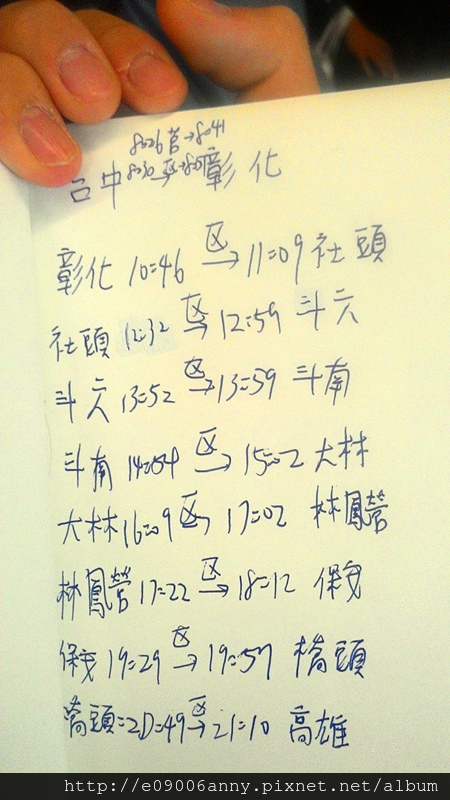 8026 莒→8041
台中 8030 区→ 彰化
彰化 10:46 区→ 11:09 社頭
社頭 12:32 区→ 12:59 斗六
斗六 13:52 区→ 13:59 斗南
斗南 14:54 区→ 15:02 大林
大林 16:09 区→ 17:02 林鳳營
林鳳營 17:22 区→ 18:12 保安
保安 19:29 区→ 19:57 橋頭
橋頭:20:49 区→ 21:10 高雄
http://e09006anny.pixnet.net/album